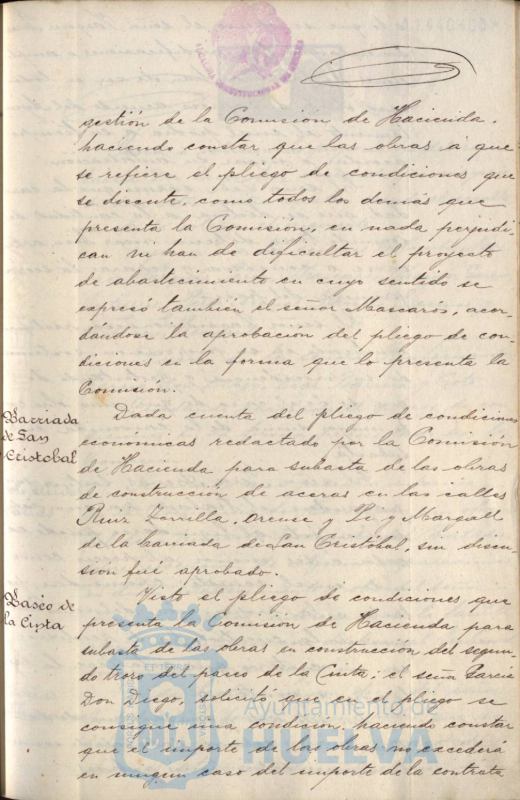 gestión de la Comisión de Hacienda,
haciendo constar que las obras á que
se refiere el pliego de condiciones que
se discute, como todos los demás que
presenta la Comisión, en nada perjudi-
can ni han de dificultar el proyecto
de abastecimiento en cuyo sentido se
expresó también el señor Mascarós, acor-
dándose la aprobación del pliego de con-
diciones en la forma que lo presenta la
Comisión.
Barriada
de San
Cristobal
Dada cuenta del pliego de condiciones
económicas redactado por la Comisión
de Hacienda para subasta de las obras
de construcción de aceras en las calles
Ruiz Zorrilla, Orense y Pi y Margall
de la barriada de San Cristóbal, sin discu-
sión fué aprobado.
Paseo de
la Cinta
Visto el pliego de condiciones que
presenta la Comisión de Hacienda para
subasta de las obras en construcción del segun-
do trozo del paseo de la Cinta; el señor Garcia
Don Diego, solicitó que en el pliego se
consigne una condición haciendo constar
que el importe de las obras no excederá
en ningun caso del importe de la contrata
Ayuntamiento de
HUELVA